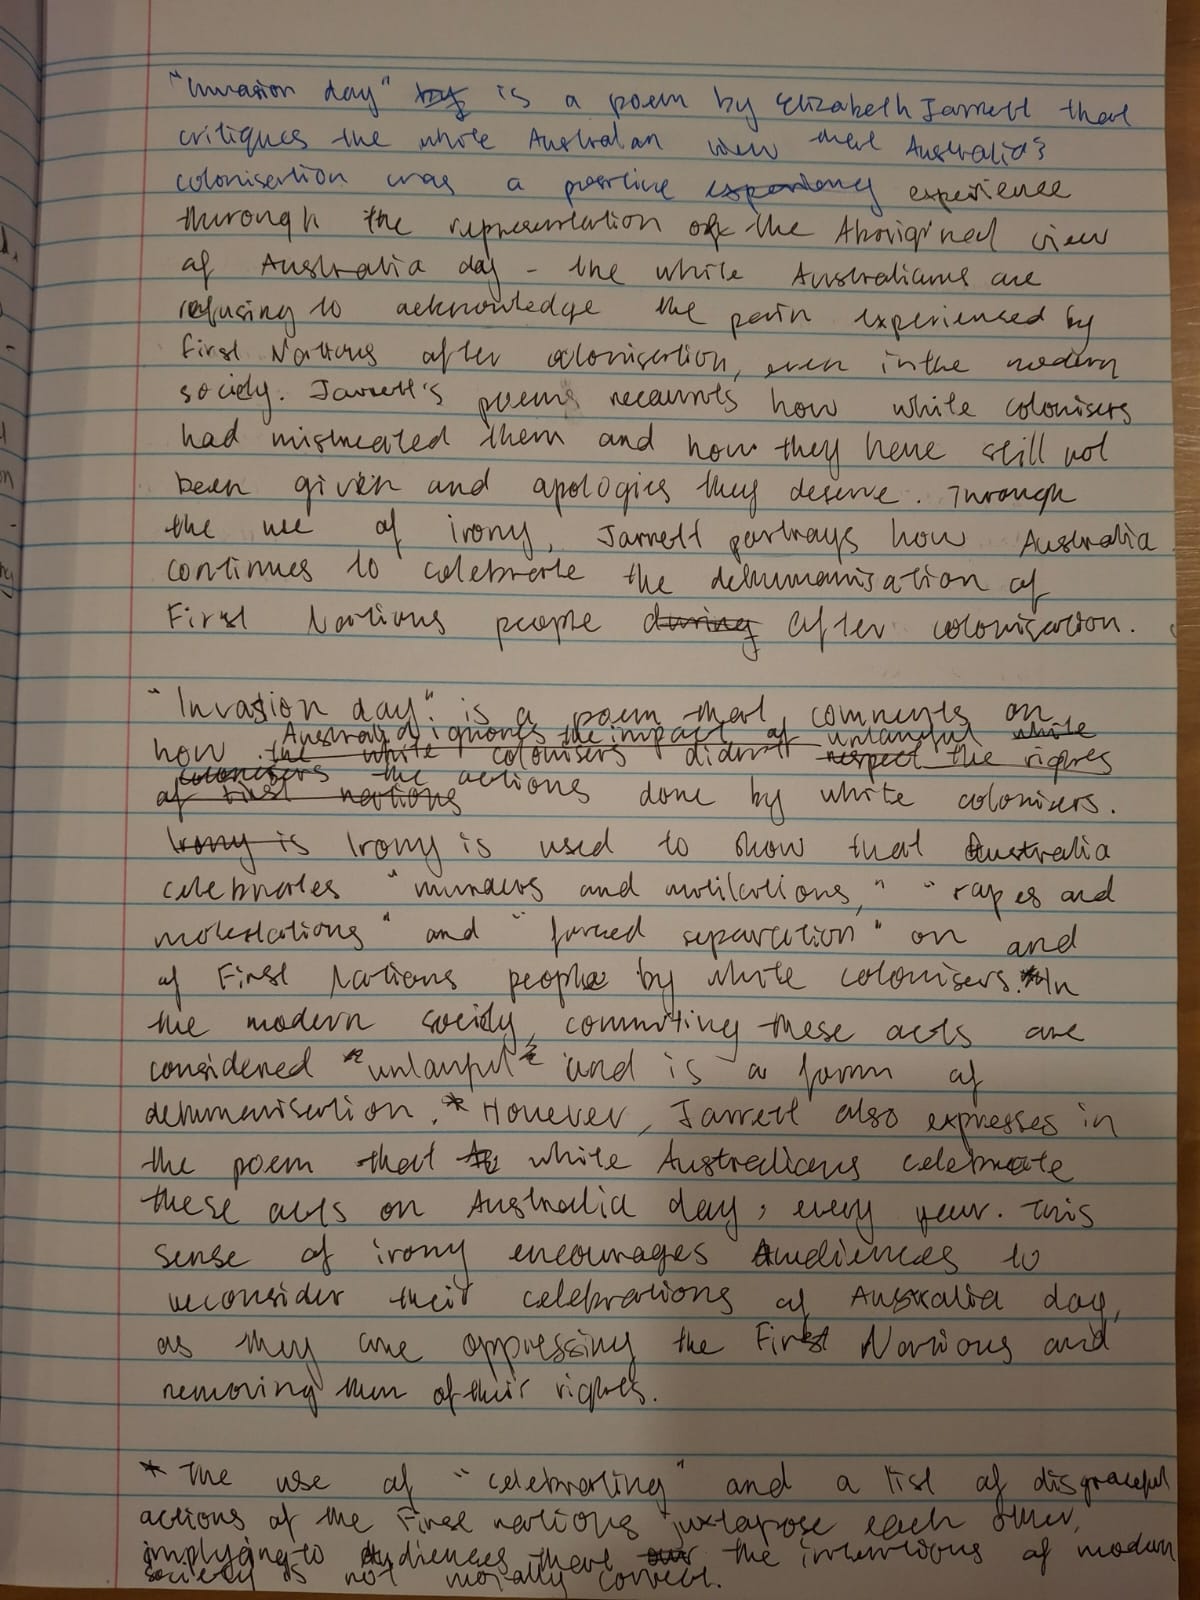 "Invasion day" by is a poem by Elizabeth Jarrett that
critiques the white Australian view that Australia's
colonisation was a positive experience
through the representation of the Aboriginal view
of Australia day - the white Australians are
refusing to acknowledge the pain experienced by
First Nations after colonisation, even in the modern
society. Jarrett's poems recounts how white colonisers
had mistreated them and how they have still not
been given and apologies they deserve. Through
the use of irony, Jarrett portrays how Australia
continues to celebrate the dehumanisation of
First Nations people during after colonisation.
"Invasion day" is a poem that comments on
Australia ignores the impact of unlawful white
how the white colonisers didn't respect the rights
colonisers the actions done by white colonisers.
of first nations
Irony is Irony is used to show that Australia
celebrates "murders and mutilations," "rapes and
molestations" and "forced separation" on and
of First Nations people by white colonisers.* In
the modern society, commiting these acts are
considered "unlawful" and is a form of
dehumanisation.* However, Jarrett also expresses in
the poem that white Australians celebrate
these acts on Australia day, every year. This
sense of irony encourages Audiences to
reconsider their celebrations of Australia day,
as they are oppressing the First Nations and
removing them of their rights.
* The use of "celebrating" and a list of disgraceful
actions of the First nations juxtapose each other,
implying to Audiences that our the intentions of modern
society is not morally correct.